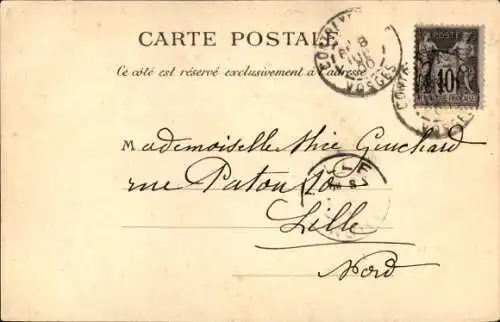 CARTE POSTALE
Ce côté est réservé exclusivement à l'adresse
POSTE
10
VOSGES
Mademoiselle Mie Guichard
rue Patou 10
Lille
Nord